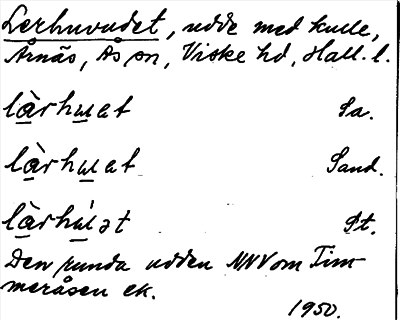 Lerhuvudet, udde med kulle,
Årnäs, Ås sn, Viske hd, Hall. l.
làrhuet Sa.
làrhuet Sand.
làrhúət St.
Den runda udden NNV om Tim-
meråsen ek.
1950.